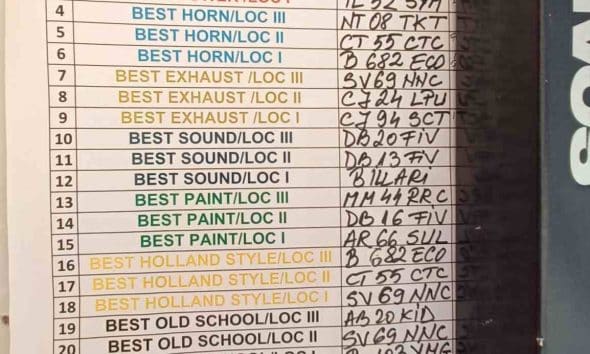 4 BEST HORN/LOC III NT 08 TKT
5 BEST HORN/LOC II CT 55 CTC
6 BEST HORN/LOC I B 682 ECO
7 BEST EXHAUST /LOC III SV 69 NNC
8 BEST EXHAUST /LOC II CJ 24 LPU
9 BEST EXHAUST /LOC I CJ 94 SCT
10 BEST SOUND/LOC III DB 20 FiV
11 BEST SOUND/LOC II DB 13 FiV
12 BEST SOUND/LOC I BILLARI
13 BEST PAINT/LOC III MM 44 RRC
14 BEST PAINT/LOC II DB 16 FiV
15 BEST PAINT/LOC I AR 66 SUL
16 BEST HOLLAND STYLE/LOC III B 682 ECO
17 BEST HOLLAND STYLE/LOC II CT 55 CTC
18 BEST HOLLAND STYLE/LOC I SV 69 NNC
19 BEST OLD SCHOOL/LOC III AB 20 KiD
20 BEST OLD SCHOOL/LOC II SV 69 NNC